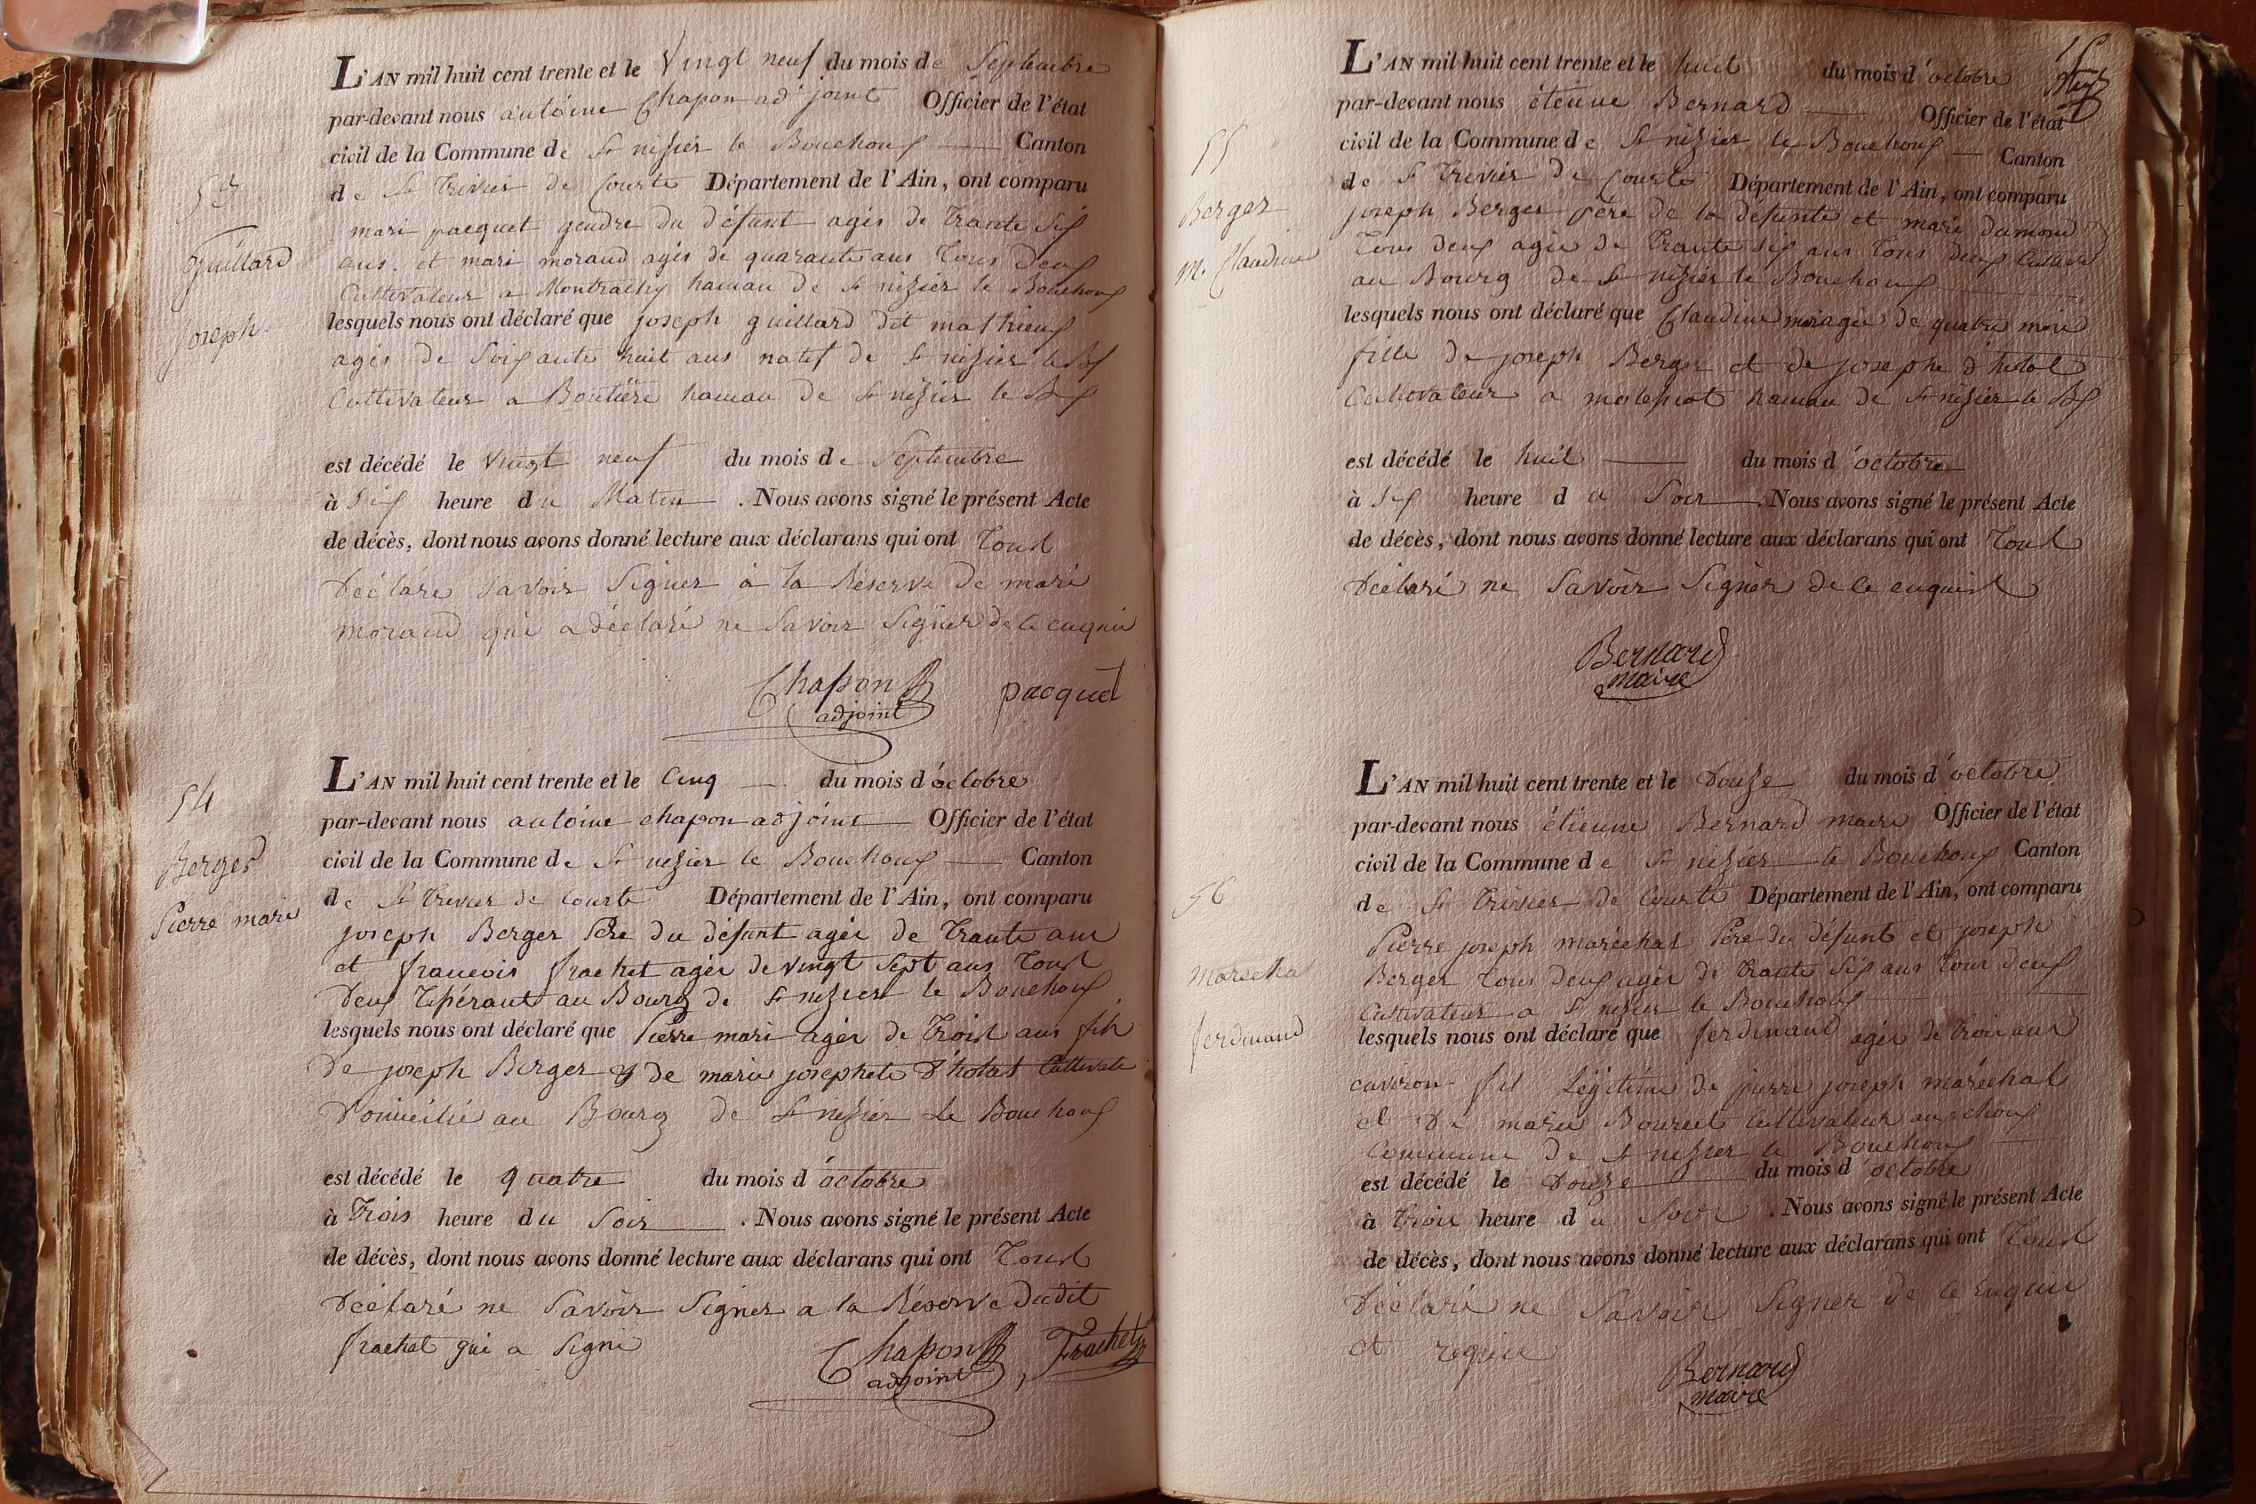 L'AN mil huit cent trente et le Vingt neuf du mois de Septembre
par-devant nous antoine Chapon adjoint Officier de l'état
civil de la Commune de St nizier le Bouchoux Canton
de St Trivier de Courte Département de l'Ain, ont comparu
53
Guillard
Joseph
mari pacquet gendre du défunt agés de Trante Six
ans. et mari moraud agés de quarante ans Tous deux
Cultivateur a Montrachy hamau de St nizier le Bouchoux
lesquels nous ont déclaré que joseph guillard dit mathieux
agés de Soixante huit ans natif de St nizier le Bx
Cultivateur a Boutière hamau de St nizier le Bx
est décédé le Vingt neuf du mois de Septembre
à Six heure du Matin . Nous avons signé le présent Acte
de décès, dont nous avons donné lecture aux déclarans qui ont Tous
Déclaré Savoir Signer à la Réserve de mari
moraud qui a déclaré ne Savoir Signer de ce enquis
Chapon pacquet
adjoint
L'AN mil huit cent trente et le Cinq du mois d'octobre
par-devant nous antoine chapon adjoint Officier de l'état
civil de la Commune de St nizier le Bouchoux Canton
de St Trivier de Courte Département de l'Ain, ont comparu
54
Berger
Pierre mari
joseph Berger Père du défunt agée de Trante ans
et francois frachet agée de vingt Sept ans Tous
Deux au Bourg de St nizier le Bouchoux
lesquels nous ont déclaré que Pierre mari agée de Trois ans fils
De joseph Berger & de marie josephete D'hotat Cultivate
Domicilié au Bourg de St nizier Le Bouchoux
est décédé le quatre du mois d'octobre
à Trois heure du Soir . Nous avons signé le présent Acte
de décès, dont nous avons donné lecture aux déclarans qui ont Tous
Déclaré ne Savoir Signer a la Réserve dudit
frachet qui a Signé
Chapon Frachet
adjoint
L'AN mil huit cent trente et le huit du mois d'octobre
par-devant nous étienne Bernard Officier de l'état
civil de la Commune de St nizier le Bouchoux Canton
de St Trivier de Courte Département de l'Ain, ont comparu
55
Berger
M. Claudine
joseph Berger Père de la défunte et mari dumond
Tous deux agée de Trante Six ans Tous deux Cultiva
au Bourg de St nizier le Bouchoux
lesquels nous ont déclaré que Claudine agée de quatre mois
fille de joseph Berger et de josephe d'hotat
Cultivateur a hamau de St nizier le Bx
est décédé le huit du mois d'octobre
à Six heure du Soir . Nous avons signé le présent Acte
de décès, dont nous avons donné lecture aux déclarans qui ont Tous
Déclaré ne Savoir Signer de ce enquis
Bernard
maire
L'AN mil huit cent trente et le Douze du mois d'octobre
par-devant nous étienne Bernard maire Officier de l'état
civil de la Commune de St nizier le Bouchoux Canton
de St Trivier de Courte Département de l'Ain, ont comparu
56
marecha
ferdinand
Pierre joseph maréchal Père du défunt et joseph
Berger Tous deux agée de Trante Six ans Tous deux
Cultivateur a St nizier le Bouchoux
lesquels nous ont déclaré que ferdinand agée de trois ans
environ fils Légitime de pierre joseph maréchal
et De marie Bourcet Cultivateur
Commune de St nizier le Bouchoux
est décédé le Douze du mois d'octobre
à Trois heure du Soir . Nous avons signé le présent Acte
de décès, dont nous avons donné lecture aux déclarans qui ont Tous
Déclaré ne Savoir Signer de ce Enquis
et requis
Bernard
maire